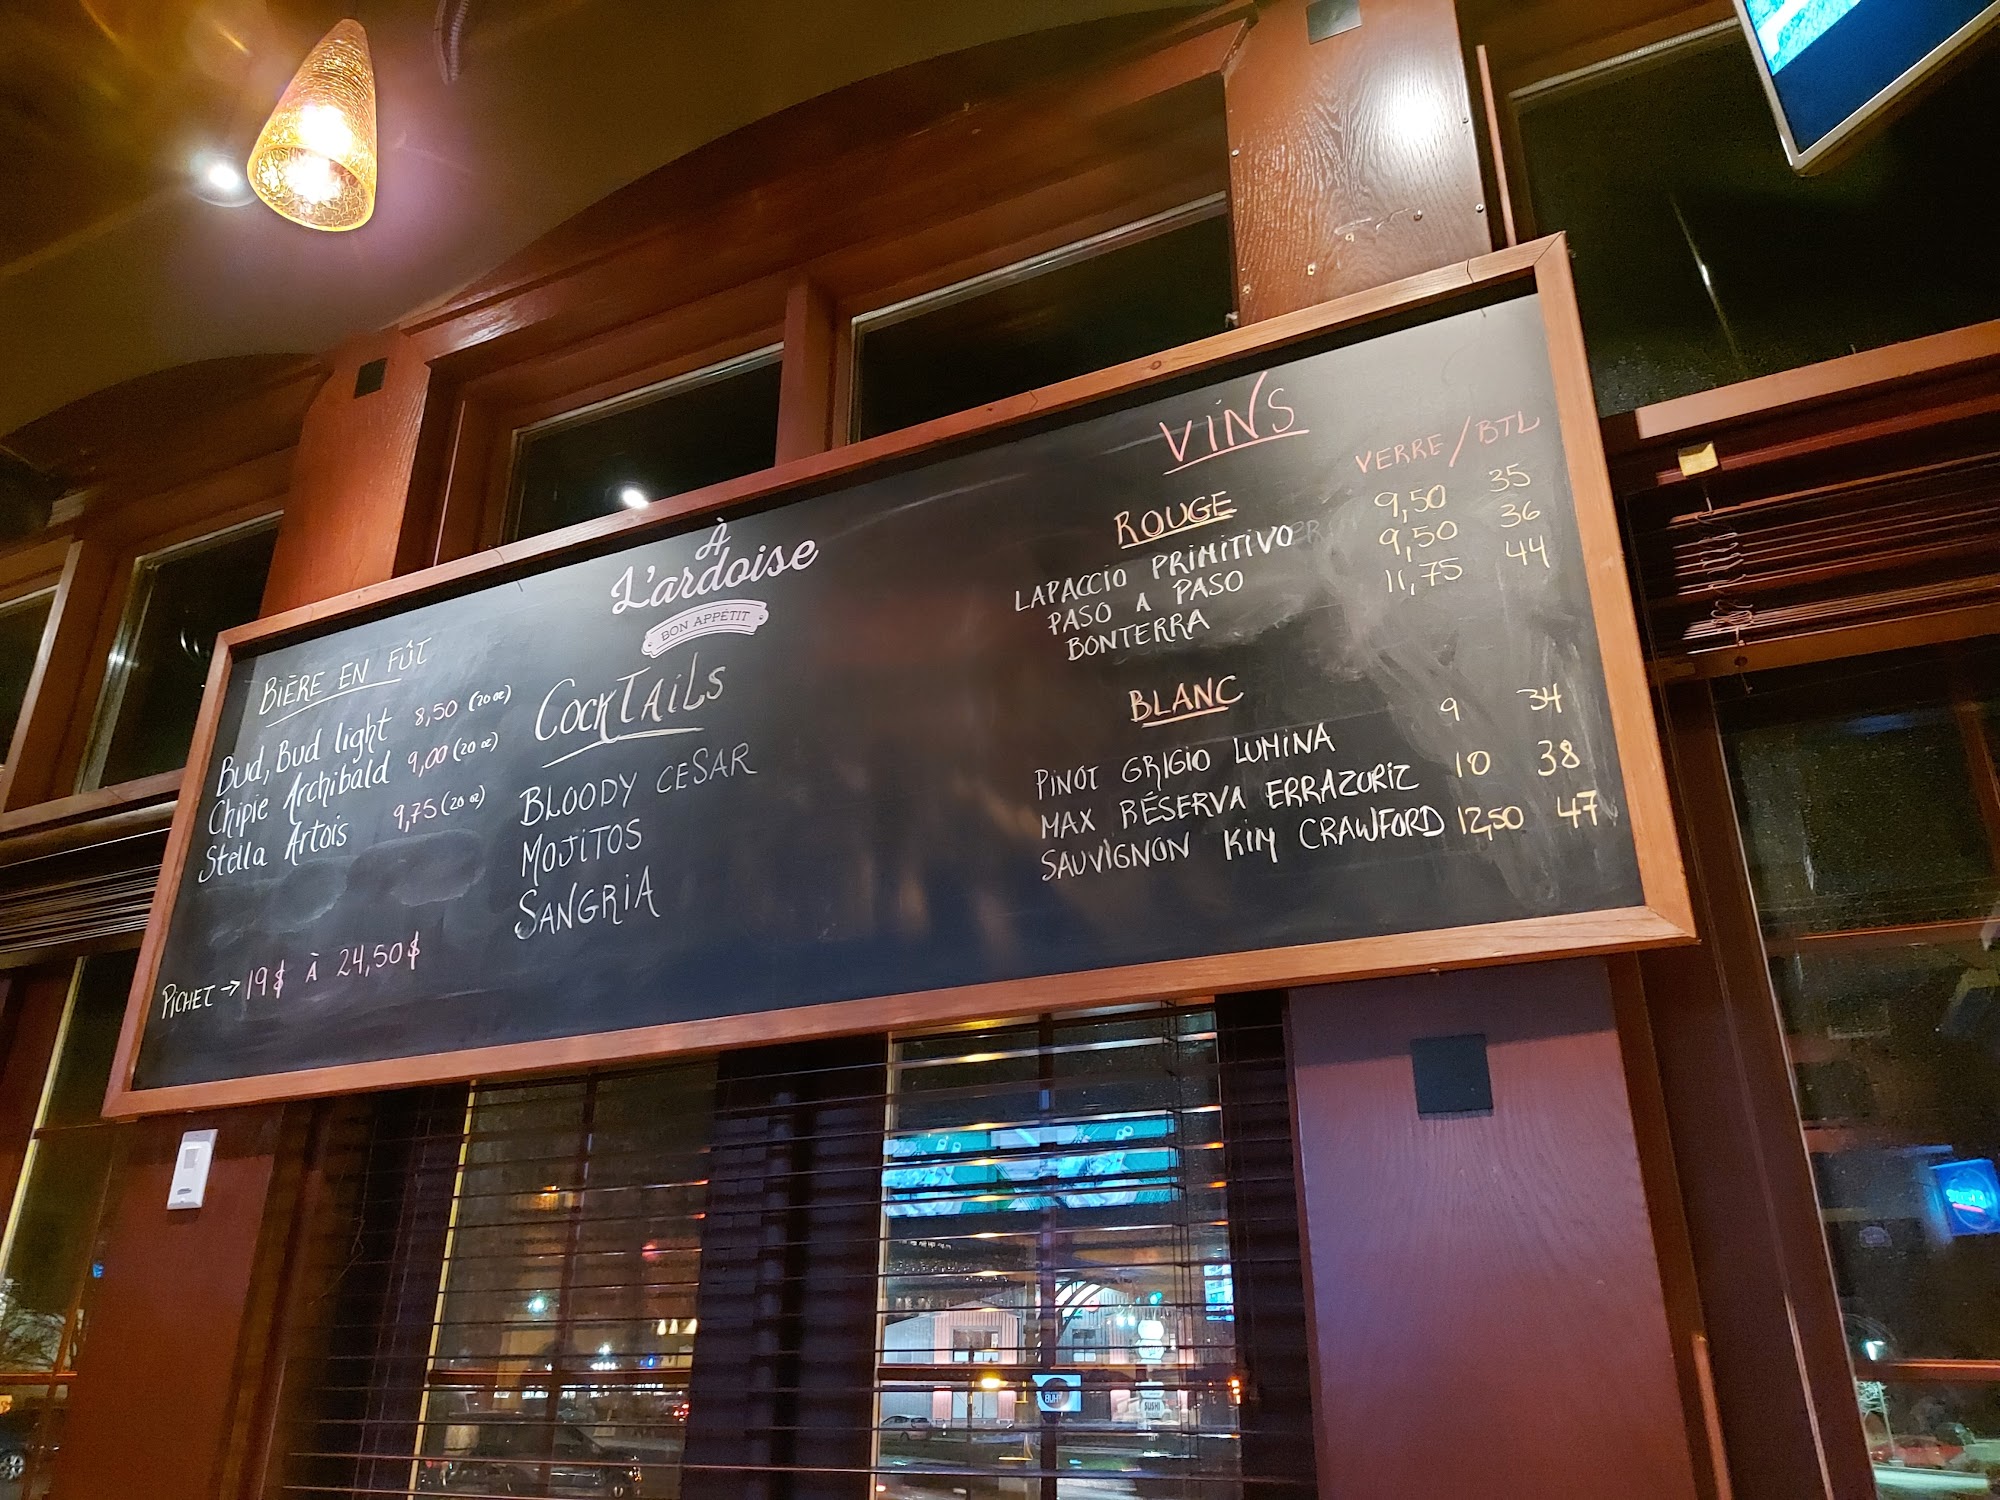 À
L'ardoise
BON APPÉTIT
BIÈRE EN FÛT
Bud, Bud light 8,50 (20 oz)
Chipie Archibald 9,00 (20 oz)
Stella Artois 9,75 (20 oz)
PICHET → 19$ À 24,50$
COCKTAILS
BLOODY CESAR
MOJITOS
SANGRIA
VINS
VERRE / BTL
ROUGE
LAPACCIO PRIMITIVO 9,50 35
PASO A PASO 9,50 36
BONTERRA 11,75 44
BLANC
PINOT GRIGIO LUMINA 9 34
MAX RÉSERVA ERRAZURIZ 10 38
SAUVIGNON KIM CRAWFORD 12,50 47
SUSHI